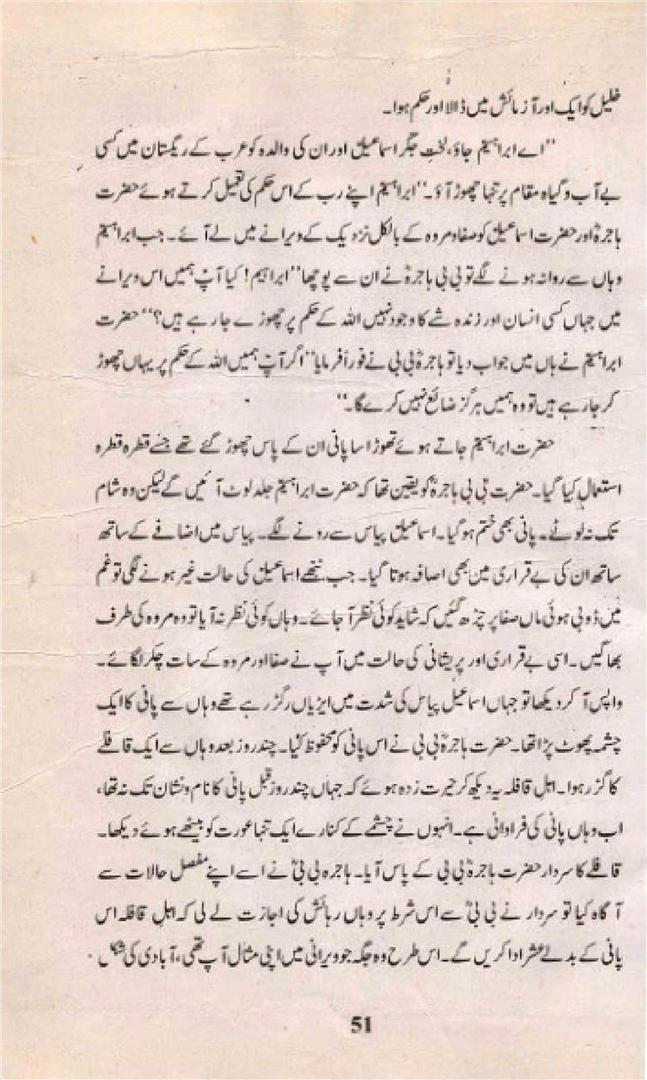 خلیل کو ایک اور آزمائش میں ڈالا اور حکم ہوا۔
"اے ابراہیمؑ جاؤ، لخت جگر اسماعیلؑ اور ان کی والدہ کو عرب کے ریگستان میں کسی
بے آب و گیاہ مقام پر تنہا چھوڑ آؤ۔" ابراہیمؑ اپنے رب کے اس حکم کی تعمیل کرتے ہوئے حضرت
ہاجرہؓ اور حضرت اسماعیلؑ کو صفا و مروہ کے بالکل نزدیک کے ویرانے میں لے آئے۔ جب ابراہیمؑ
وہاں سے روانہ ہونے لگے تو بی بی ہاجرہؓ نے ان سے پوچھا "ابراہیم! کیا آپؑ ہمیں اس ویرانے
میں جہاں کسی انسان اور زندہ شے کا وجود نہیں اللہ کے حکم پر چھوڑے جا رہے ہیں؟" حضرت
ابراہیمؑ نے ہاں میں جواب دیا تو ہاجرہؓ بی بی نے فوراً فرمایا "اگر آپؑ ہمیں اللہ کے حکم پر یہاں چھوڑ
کر جا رہے ہیں تو وہ ہمیں ہرگز ضائع نہیں کرے گا۔"
حضرت ابراہیمؑ جاتے ہوئے تھوڑا سا پانی ان کے پاس چھوڑ گئے تھے جسے قطرہ قطرہ
استعمال کیا گیا۔ حضرت بی بی ہاجرہؓ کو یقین تھا کہ حضرت ابراہیمؑ جلد لوٹ آئیں گے لیکن وہ شام
تک نہ لوٹے۔ پانی بھی ختم ہو گیا۔ اسماعیلؑ پیاس سے رونے لگے۔ پیاس میں اضافے کے ساتھ
ساتھ ان کی بے قراری مین بھی اضافہ ہوتا گیا۔ جب ننھے اسماعیلؑ کی حالت غیر ہونے لگی تو غم
میں ڈوبی ہوئی ماں صفا پر چڑھ گئیں کہ شاید کوئی نظر آ جائے۔ وہاں کوئی نظر نہ آیا تو وہ مروہ کی طرف
بھاگیں۔ اسی بے قراری اور پریشانی کی حالت میں آپ نے صفا اور مروہ کے سات چکر لگائے۔
واپس آ کر دیکھا تو جہاں اسماعیل پیاس کی شدت میں ایڑیاں رگڑ رہے تھے وہاں سے پانی کا ایک
چشمہ پھوٹ پڑا تھا۔ حضرت ہاجرہؓ بی بی نے اس پانی کو محفوظ کیا۔ چند روز بعد وہاں سے ایک قافلے
کا گزر ہوا۔ اہلِ قافلہ یہ دیکھ کر حیرت زدہ ہوئے کہ جہاں چند روز قبل پانی کا نام و نشان تک نہ تھا،
اب وہاں پانی کی فراوانی ہے۔ انہوں نے چشمے کے کنارے ایک تنہا عورت کو بیٹھے ہوئے دیکھا۔
قافلے کا سردار حضرت ہاجرہؓ بی بی کے پاس آیا۔ ہاجرہ بی بیؓ نے اسے اپنے مفصل حالات سے
آگاہ کیا تو سردار نے بی بیؓ سے اس شرط پر وہاں رہائش کی اجازت لے لی کہ اہلِ قافلہ اس
پانی کے بدلے عشر ادا کریں گے۔ اس طرح وہ جگہ جو ویرانی میں اپنی مثال آپ تھی، آبادی کی شکل
51